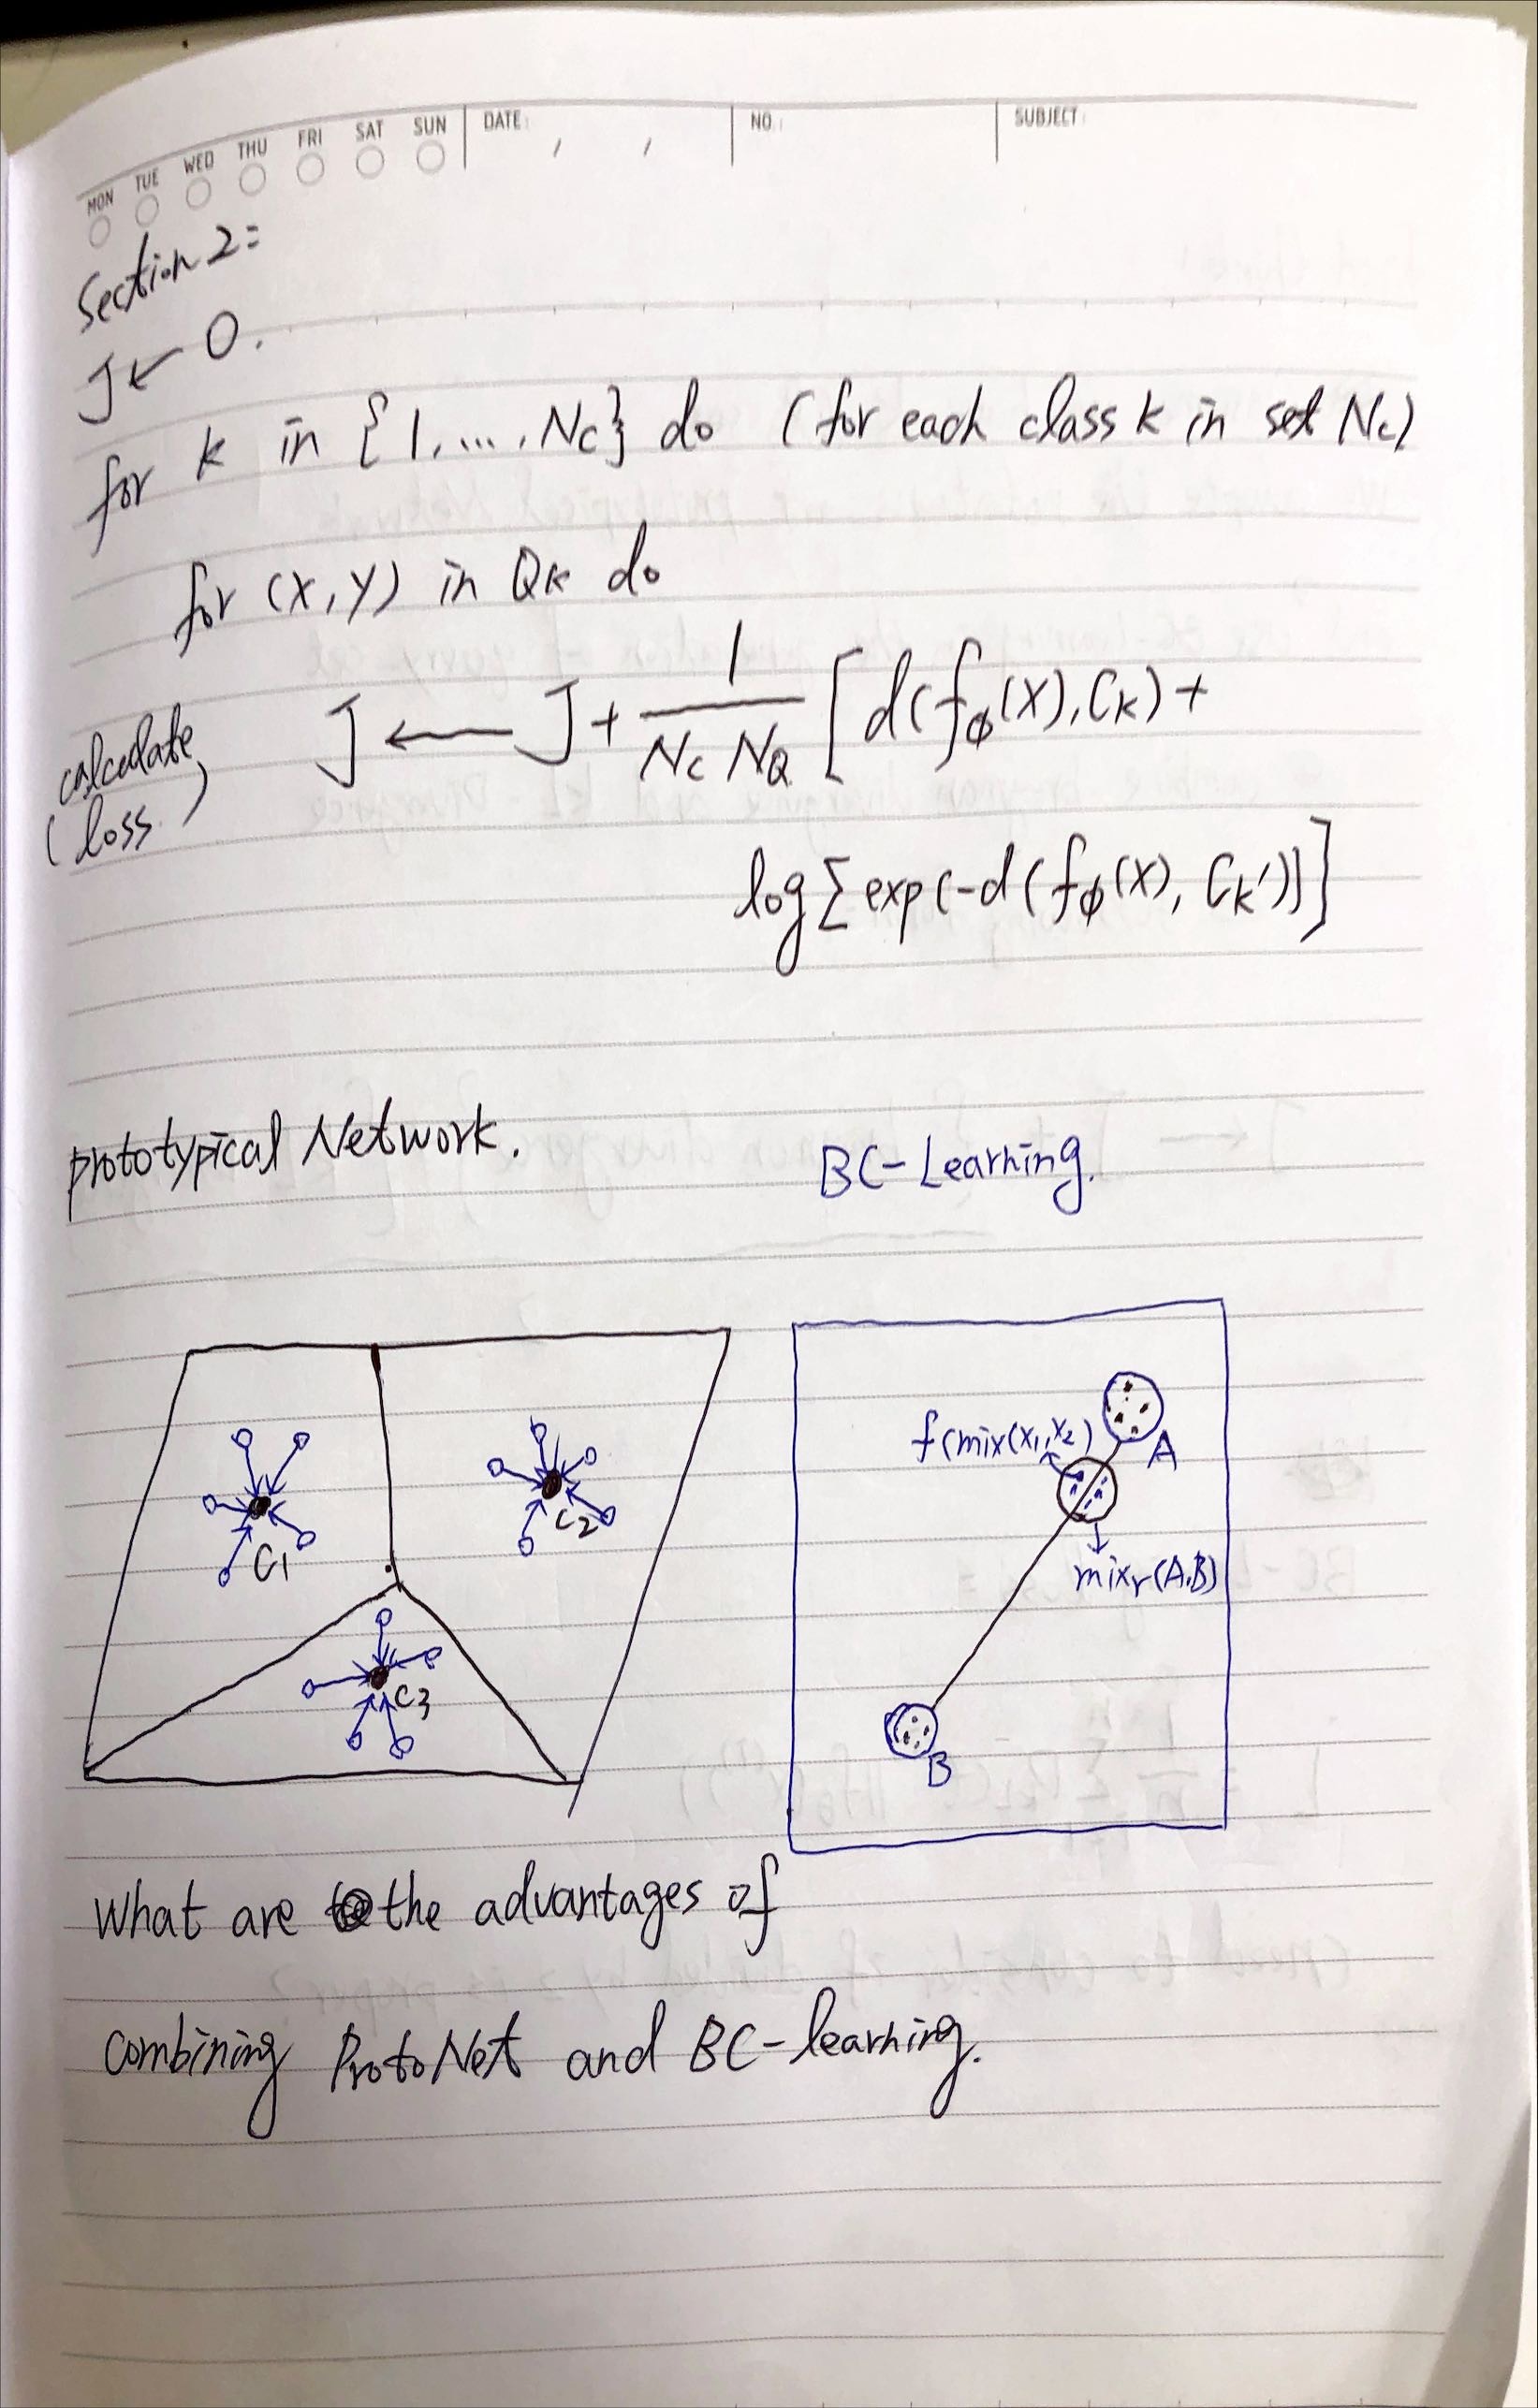 MON TUE WED THU FRI SAT SUN DATE: / / NO.: SUBJECT:
Section 2:
J ← 0.
for k in {1, ..., Nc} do (for each class k in set Nc)
for (x, y) in Qk do
(calculate loss) J ← J + 1/(Nc NQ) [d(fϕ(x), Ck) +
log Σ exp(-d(fϕ(x), Ck'))]
prototypical Network. BC-Learning.
f(mix(x1, x2) A
C1 C2
mixr(A,B)
C3
B
What are the advantages of
combining ProtoNet and BC-learning.